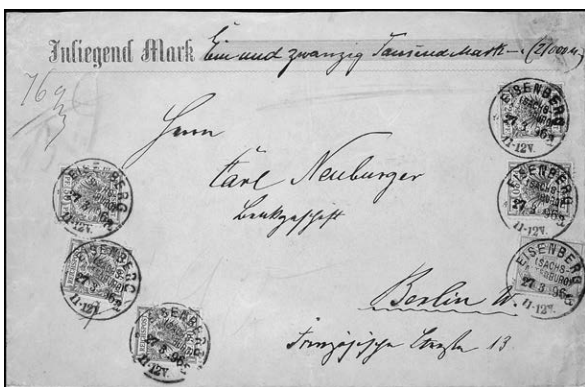 Inliegend Mark Ein und zwanzig Tausend Mark — (21000 M)
76 g
Herrn
Carl Neuburger
Bankgeschäft
Berlin W.
Französische Straße 13
EISENBERG
(SACHS-
ALTENBURG)
27 3 96
11-12V.
EISENBERG
(SACHS-
ALTENBURG)
27 3 96
11-12V.
EISENBERG
(SACHS-
ALTENBURG)
27 3 96
11-12V.
EISENBERG
27 3 96
11-12V.
EISENBERG
27 3 96
11-12V.
EISENBERG
27 3 96
11-12V.